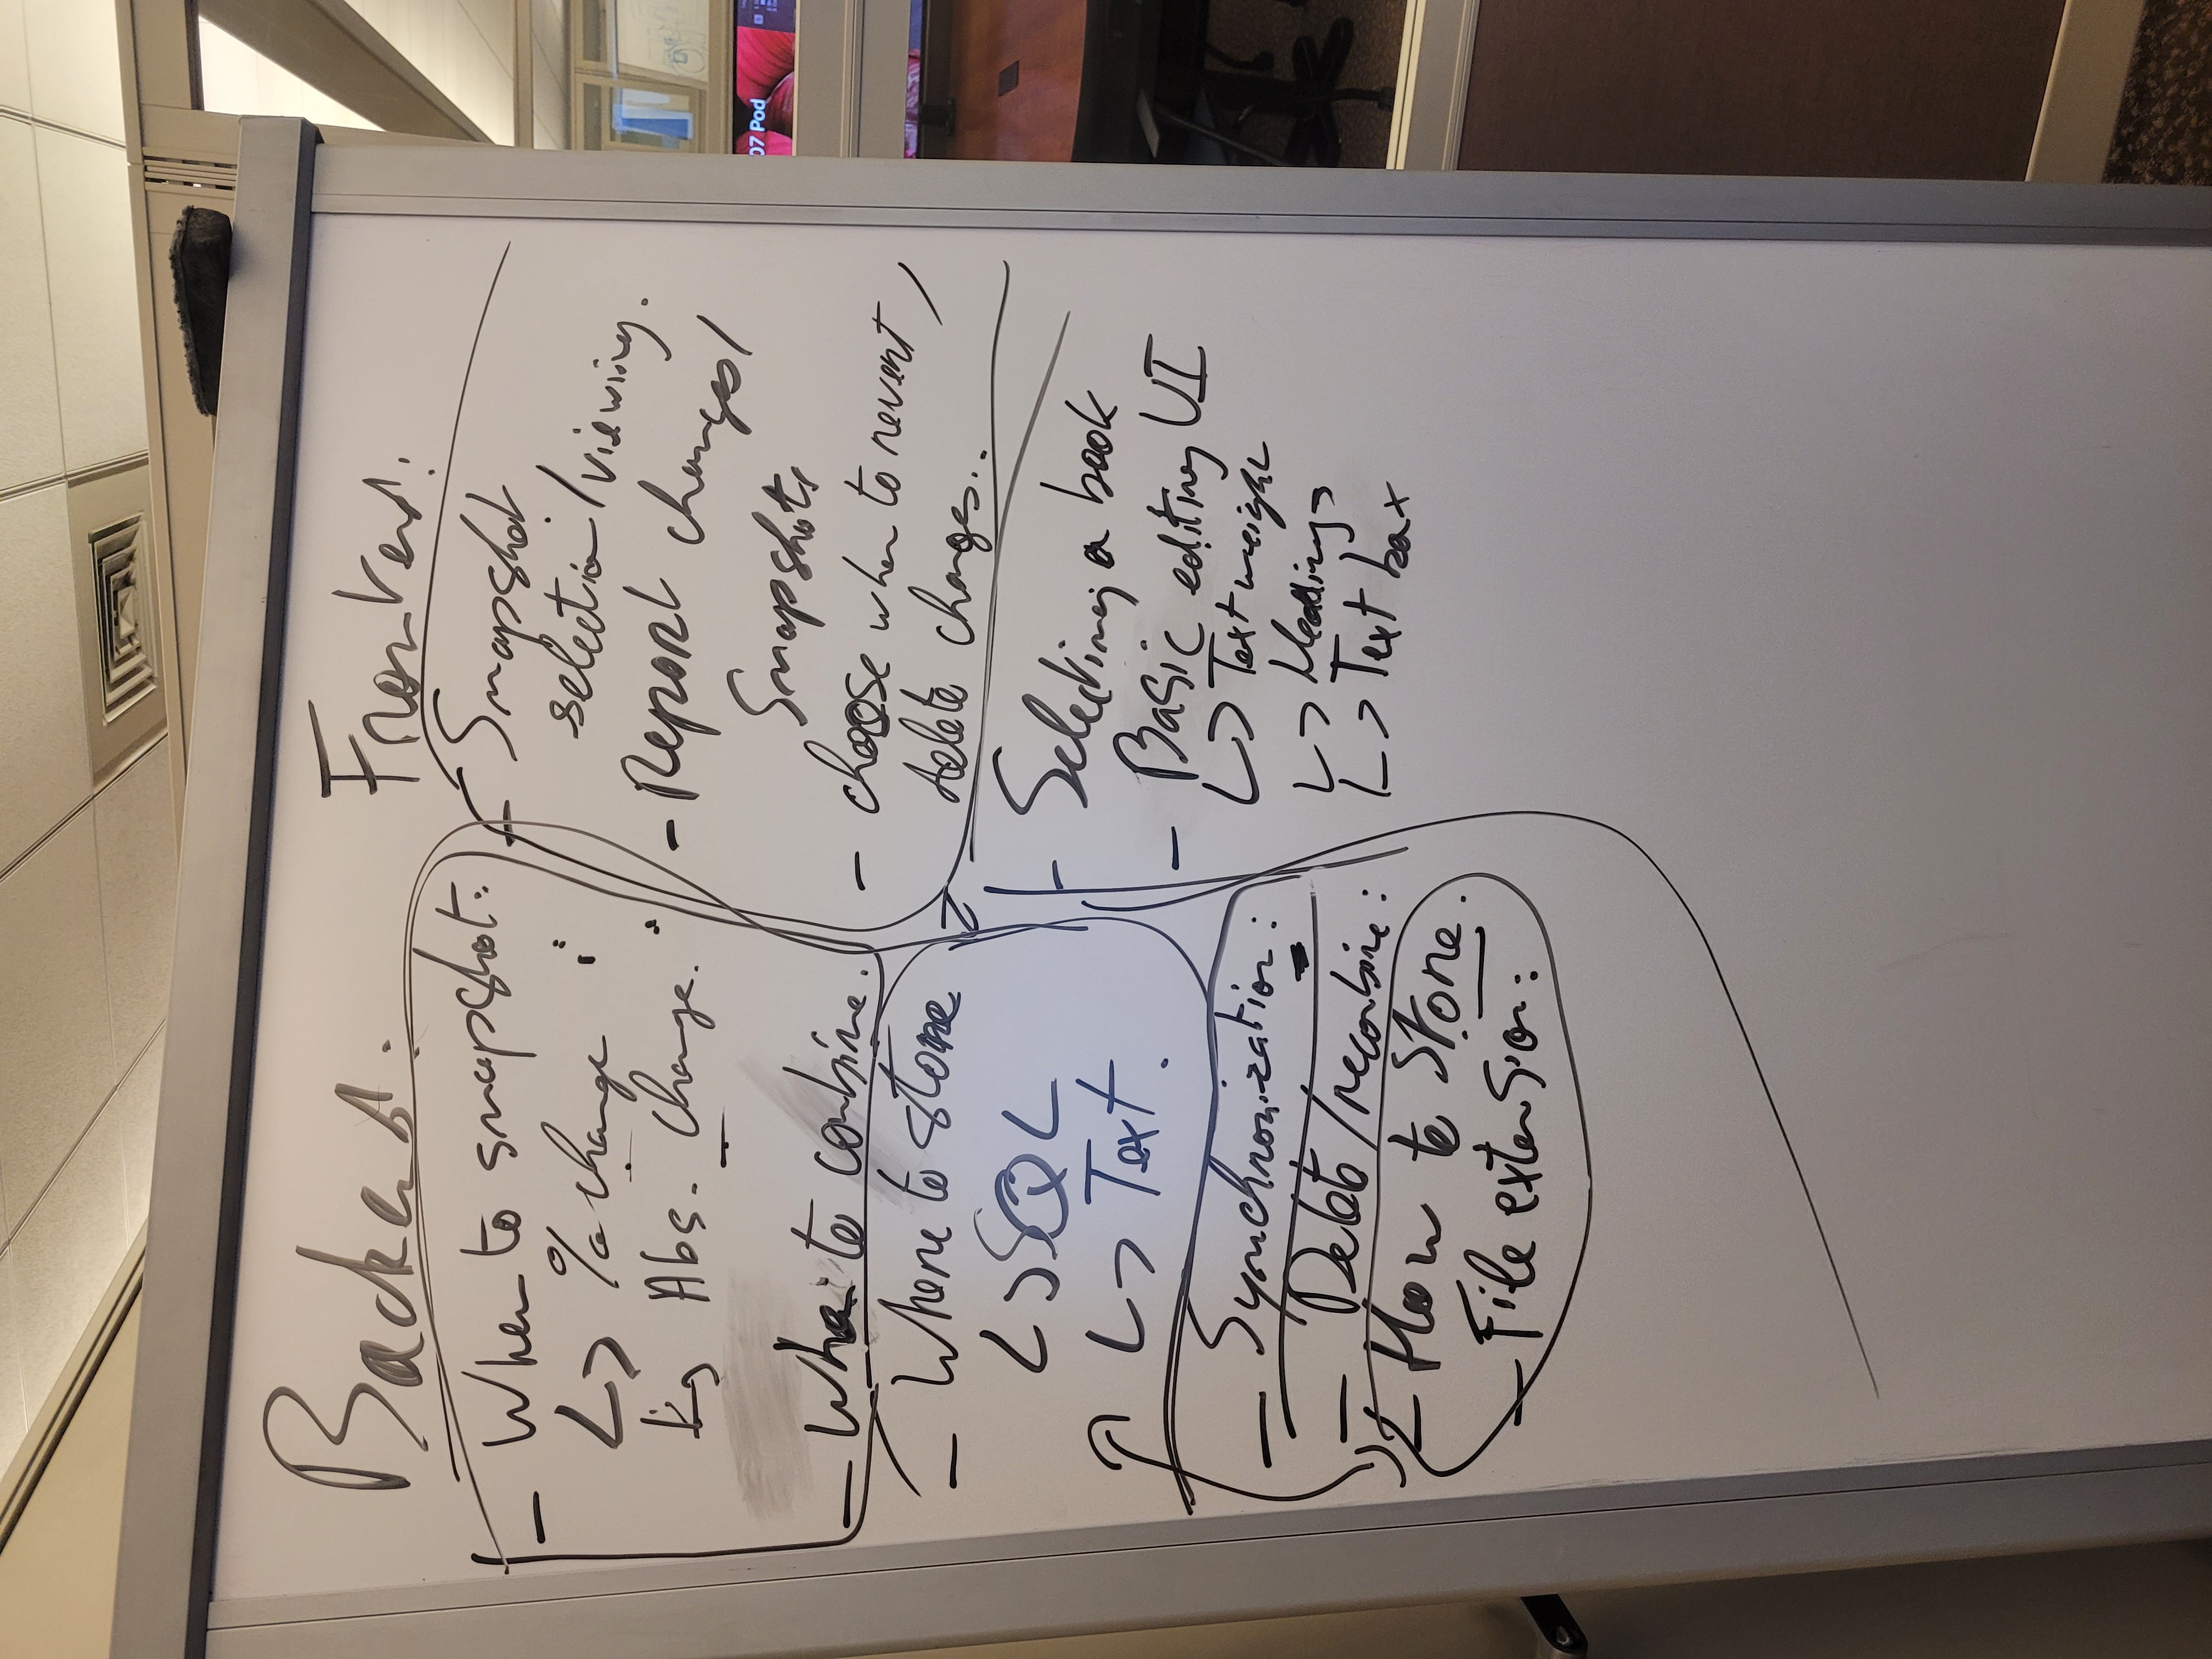 Backend:
- When to snapshot:
↳ % change :
↳ Abs. change. :
- When to combine.
- Where to store
↳ SQL
↳ Text.
- Synchronization:
- Delete/recombine:
- How to store.
- File extension:
Frontend:
- Snapshot
selection/viewing.
- Report changes/
Snapshots
- choose when to revert/
delete changes..
- Selecting a book
- Basic editing UI
↳ Text weight
↳ Headings
↳ Text box
07 Pod